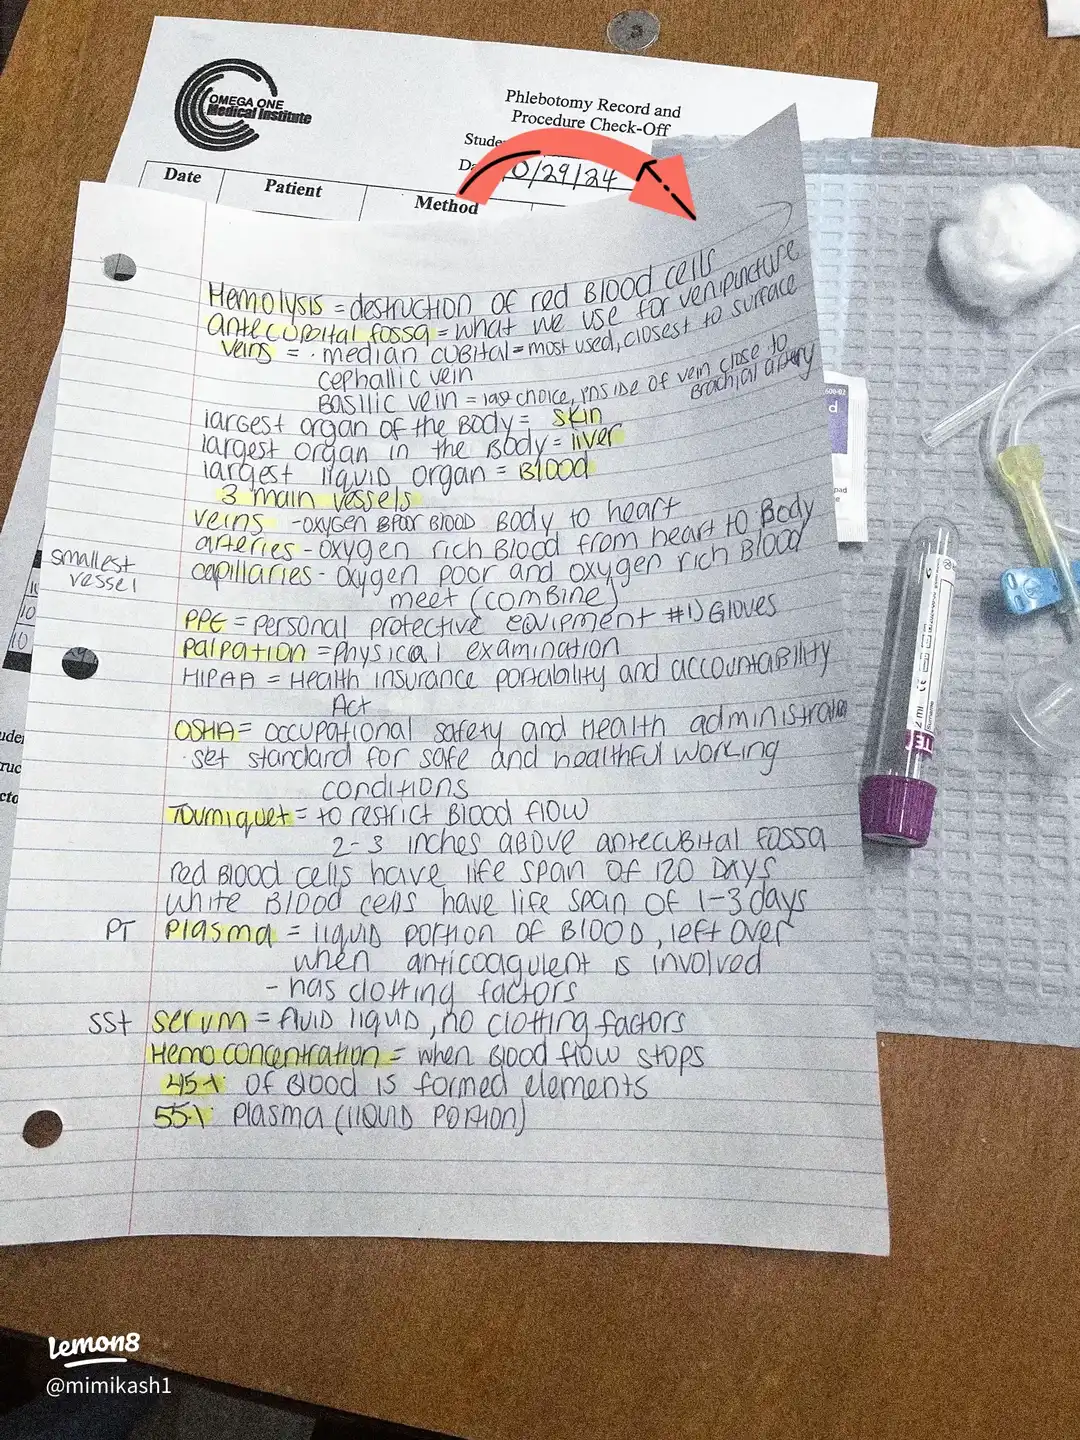 OMEGA ONE
Medical Institute
Phlebotomy Record and
Procedure Check-Off
Date
Patient
Method
0/29/24
Hemolysis = destruction of red Blood cells
antecubital fossa = what we use for venipuncture
veins = · median cubital = most used, closest to surface
cephallic vein
Basilic vein = last choice, inside of vein close to
Brachial artery
largest organ of the Body = skin
largest organ in the Body = liver
largest liquid organ = Blood
3 main vessels
veins - oxygen poor Blood Body to heart
arteries - oxygen rich Blood from heart to Body
smallest
vessel
capillaries - oxygen poor and oxygen rich Blood
meet (combine)
PPE = personal protective equipment #1) Gloves
palpation = physical examination
HIPAA = Health insurance portability and accountability
Act
OSHA = occupational safety and Health administration
· set standard for safe and healthful working
conditions
Tourniquet = to restrict Blood flow
2-3 inches above antecubital fossa
red Blood cells have life span of 120 Days
white Blood cells have life span of 1-3 days
PT plasma = liquid portion of Blood, left over
when anticoagulent is involved
- has clotting factors
SST serum = fluid liquid, no clotting factors
Hemoconcentration = when Blood flow stops
45% of Blood is formed elements
55% plasma (liquid portion)
2 ml
lemon8
@mimikash1